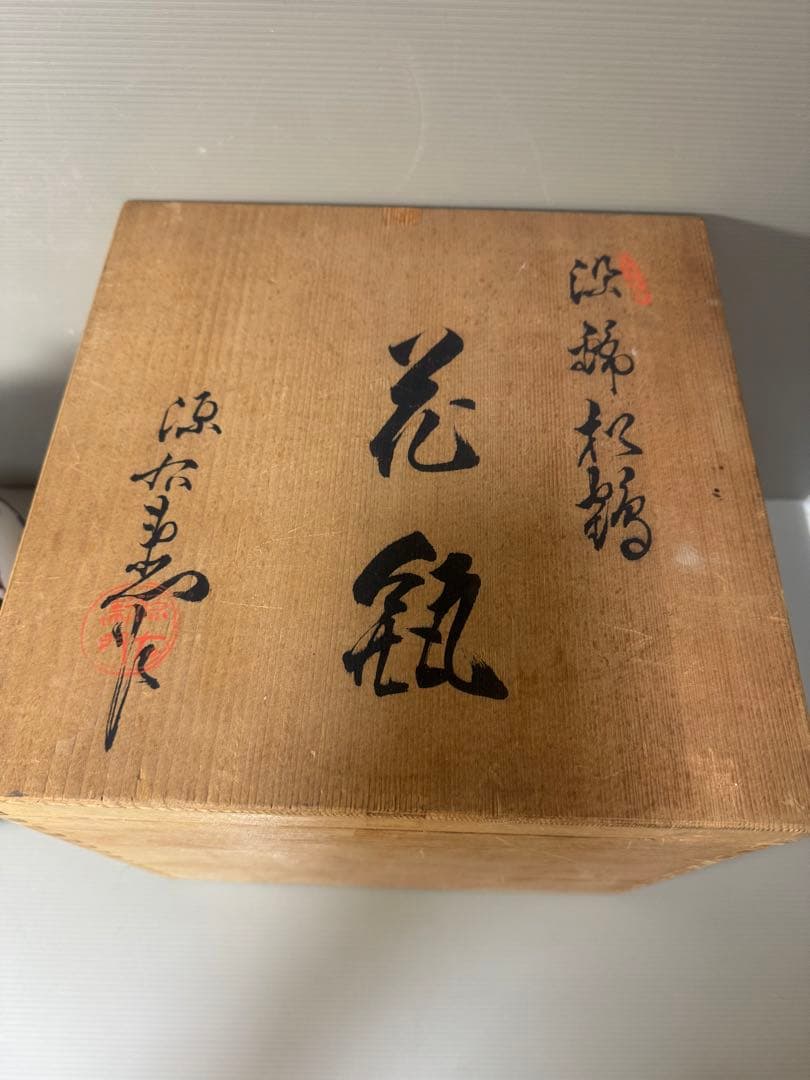 染錦松鶴
花瓶
源右衛門作